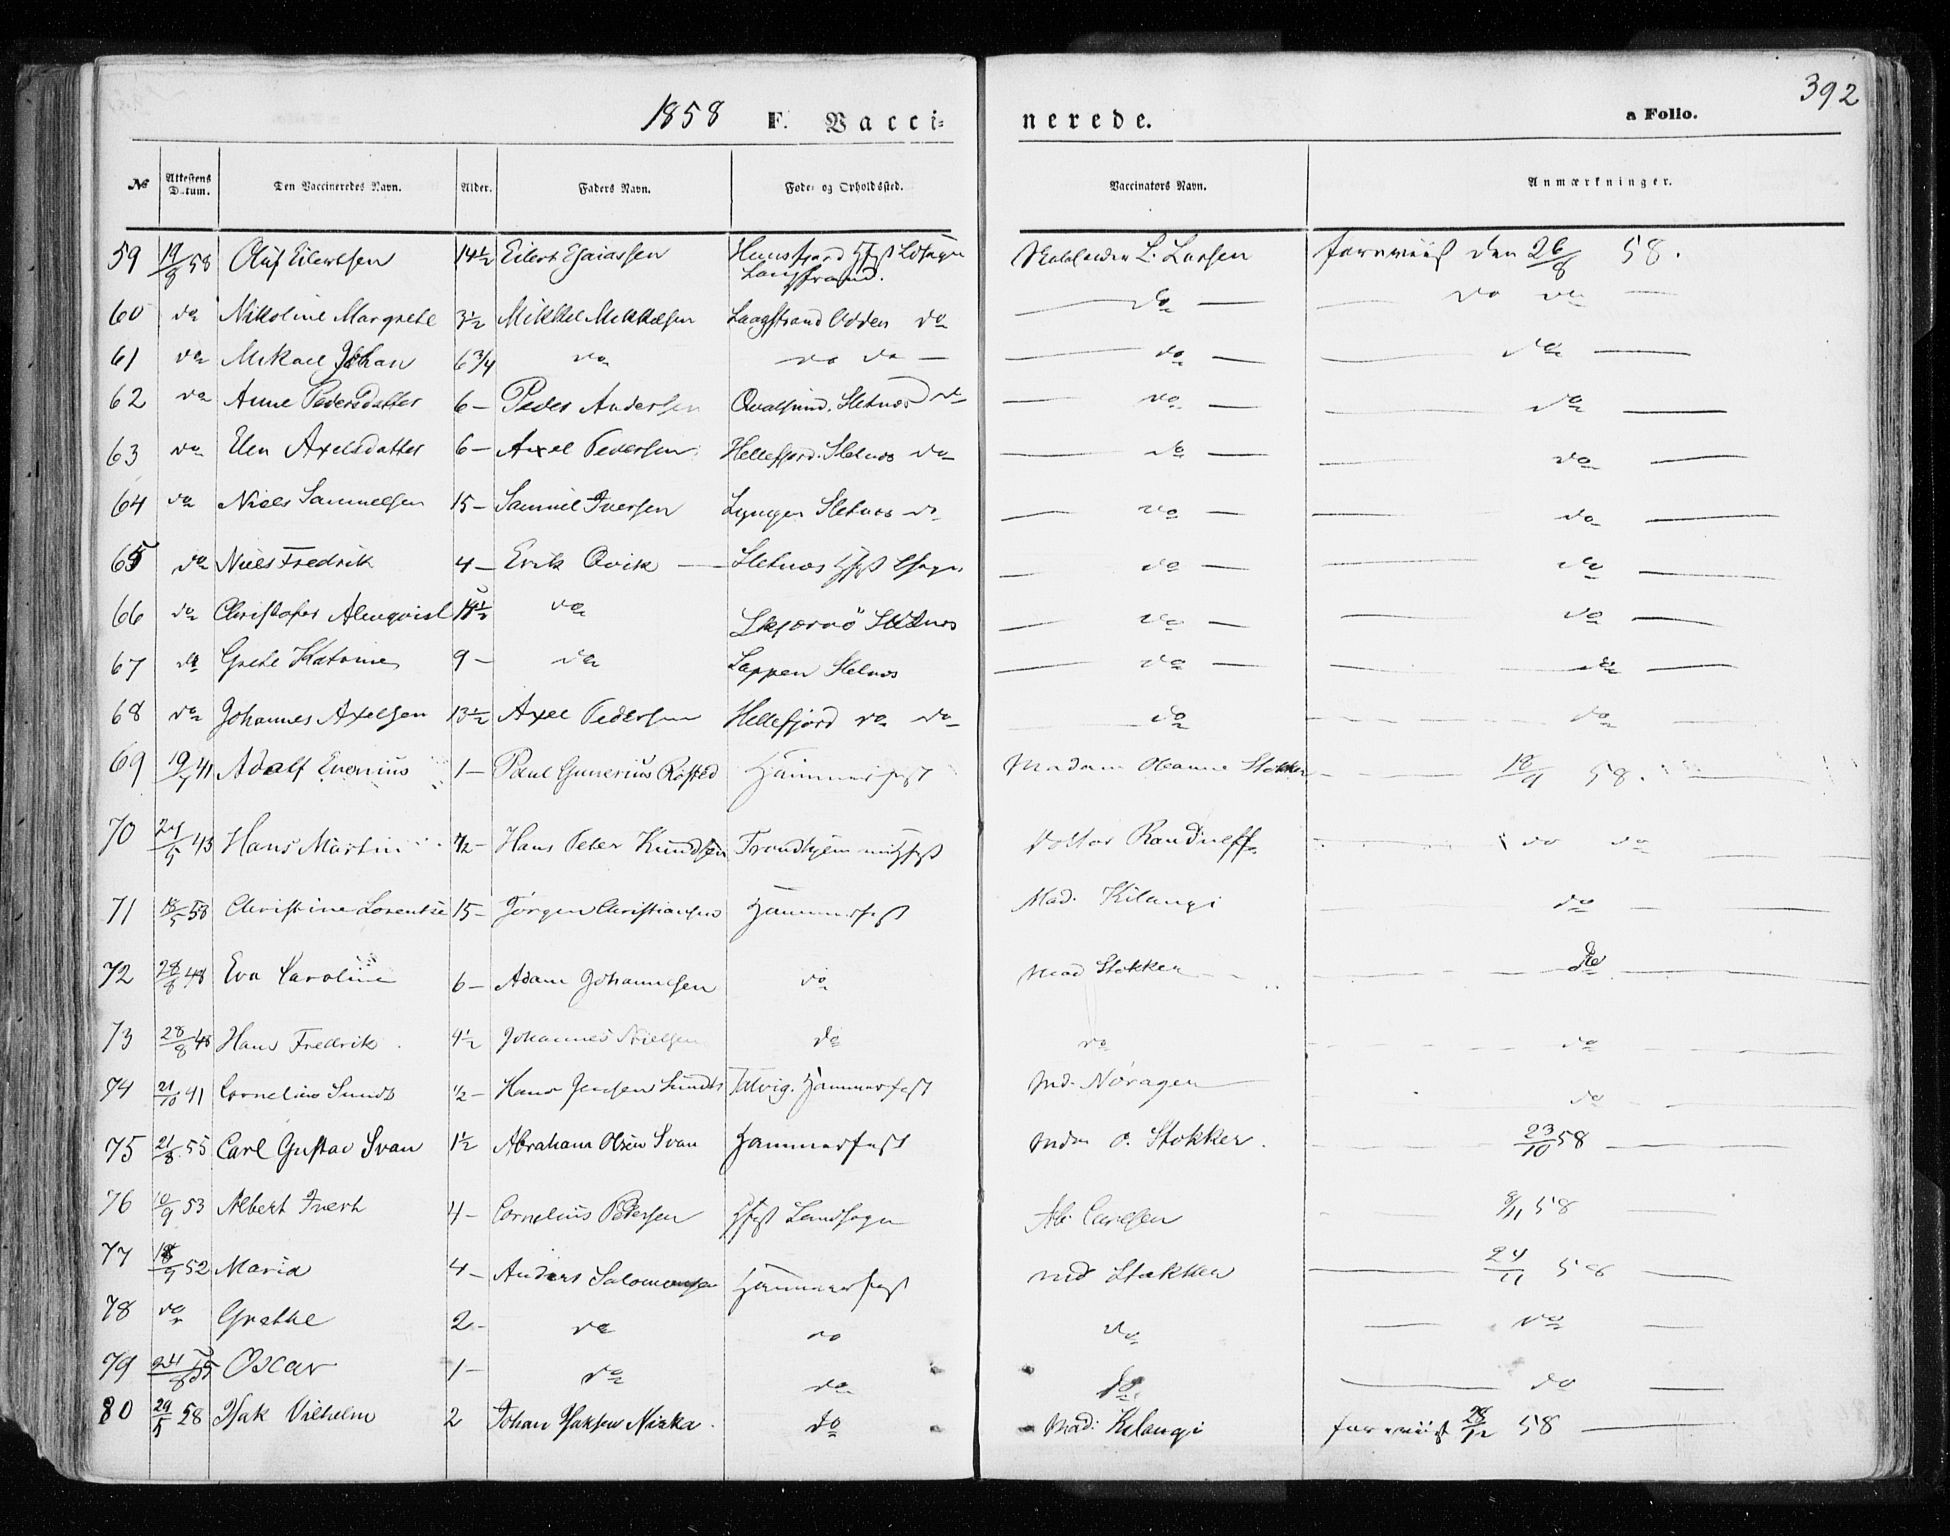 392
1858 F. Vaccinerede. a Folio.
No Attestens Datum. Den Vaccineredes Navn. Alder. Faders Navn. Føde- og Opholdssted. Vaccinators Navn. Anmærkninger.
59 19/8 58 Oluf Eilertsen 14½ Eilert Esaiassen L. Larsen foreviist den 26/8 58.
60 do Nikoline Margrethe 3½ Mikkel Mikkelsen Langstrand Odden do — do — — do do —
61 do Mikael Johan 6¾ do do do — — do — — do —
62 do Anne Pedersdatter 6 — Peder Andersen Qvalsund. Sletnes do — do — — do —
63 do Elen Axelsdatter 6 — Axel Pedersen Hellefjord. Sletnes do — do — — do —
64 do Niels Samuelsen 15 — Samuel Iversen Lyngen Sletnes do — do — — do —
65 do Niels Fredrik 4 — Erik Qvik — Sletnes Hfest Lsogn — do — — do —
66 do Christofer Almqvist do Skjærnø Sletnes — do — — do —
67 do Grethe Katrine 9 — do Lappen Sletnes — do — — do —
68 do Johannes Axelsen 13½ Axel Pedersen Hellefjord do do — do — do —
69 19/7 41 Adolf Evenius 1 — Paul Gunerius Røsted Hammerfest Madam Oleanne Stokker — 18/9 58. —
70 24/5 43 Hans Martin ½ — Hans Peter Knudsen Doktor do do —
71 18/5 58 Christine Lorentse 15 — Jørgen Christiansen Hammerfest Mad. Kilangi — do —
72 28/8 48 Eva Caroline 6 — Adam Johannesen do Mad Stokker — do —
73 28/8 48 Hans Fredrik 4½ Johannes Nielsen do do — do —
74 21/10 41 Cornelius Sunds ½ — Hans Jensen Sunds Talvig. Hammerfest Md. Noragen — do
75 21/8 55 Carl Gustav Svan 1½ Abraham Olsen Svan Hammerfest Mdm O. Stokker. — 23/10 58 —
76 10/9 53 Albert Ivert 4 — Cornelius Pedersen Hfest Landsogn Ab. Carlsen — 8/11 58 —
77 18/9 52 Maria 4 — Anders Salomonsen Hammerfest Md Stokker — 24/11 58 —
78 do Grethe 2 — do do do — do —
79 24/8 55 Oscar 1 — do do do. — do —
80 29/5 58 Isak Vilhelm 2 Johan Isaksen Niska. do Mad: Kilangi foreviist 28/12 58 —